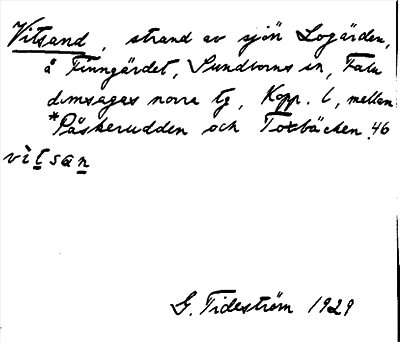 Vitsand, strand av sjön Logärden,
å Finngärdet, Sundborns sn, Falu
domsagas norra tg, Kopp. l, mellan
*Päskerudden och Toxbäcken. 46
vìtsan
G. Tideström 1929